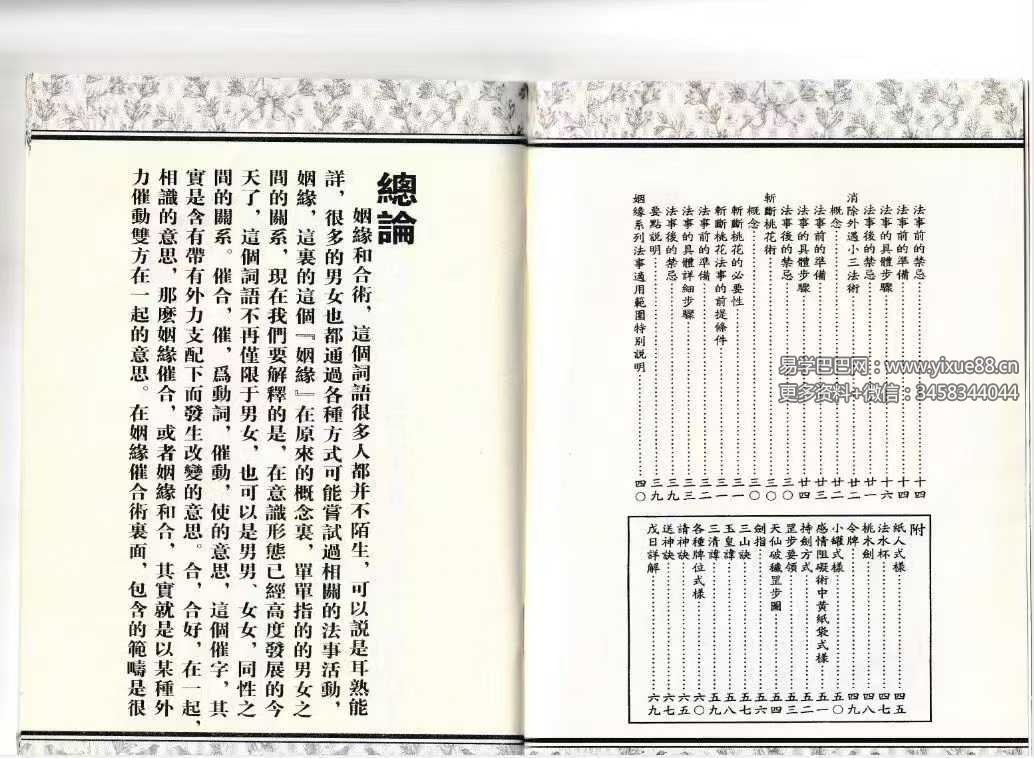 法事前的禁忌……十四
法事前的準備……十四
法事的具體步驟……十六
法事後的禁忌……廿一
消除外遇小三法術……廿二
概念……廿二
法事前的準備……廿三
法事的具體步驟……廿四
法事後的禁忌……三〇
斬斷桃花術……三〇
概念……三〇
斬斷桃花的必要性……三一
斬斷桃花法事的前提條件……三一
法事前的準備……三二
法事的具體詳細步驟……三三
法事後的禁忌……三九
要點説明……三九
姻緣系列法事適用範圍特别説明……四〇
附
紙人式樣……四五
法水杯
桃木劍……四八
令牌……四九
小罐式樣……五〇
感情阻礙術中黄紙袋式樣……五一
持劍方式……五二
罡步要領……五三
天仙破穢罡步圖……五四
劍指……五六
三山訣
玉皇諱……五八
三清諱
各種牌位式樣……六〇
請神訣……六五
送神訣……六七
戊日詳解……六九
總論
姻緣和合術，這個詞語很多人都并不陌生，可以説是耳熟能
詳，很多的男女也都通過各種方式可能嘗試過相關的法事活動，
姻緣，這裏的這個『姻緣』在原來的概念裏，單單指的的男女之
間的關系，現在我們要解釋的是，在意識形態已經高度發展的今
天了，這個詞語不再僅限于男女，也可以是男男、女女，同性之
間的關系。催合，催，爲動詞，催動，使的意思，這個催字，其
實是含有帶有外力支配下而發生改變的意思。合，合好，在一起，
相識的意思，那麽姻緣催合，或者姻緣和合，其實就是以某種外
力催動雙方在一起的意思。在姻緣催合術裏面，包含的範疇是很
易学巴巴网：www.yixue88.cn
更多资料+微信：3458344044